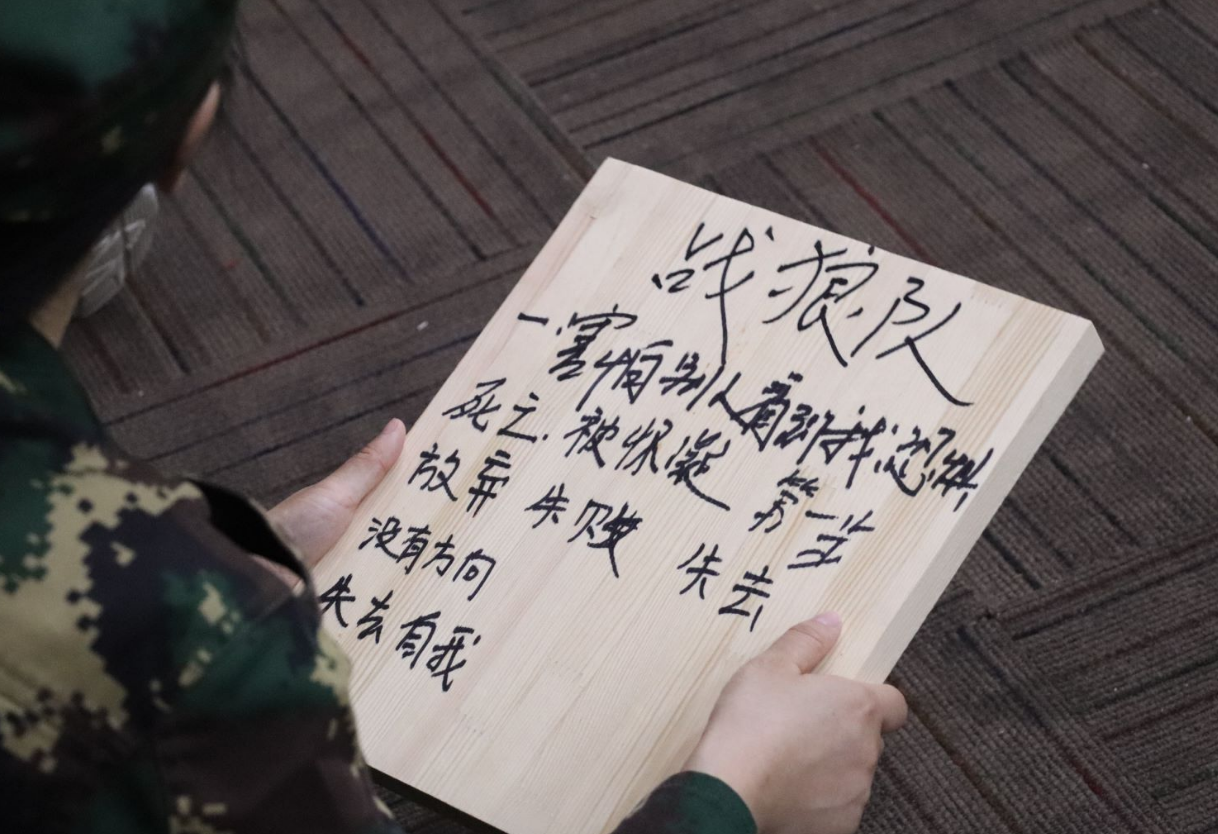 战狼队
一.害怕别人看到我
死亡. 被怀疑 第一
放弃 失败 失去
没有方向
失去自我